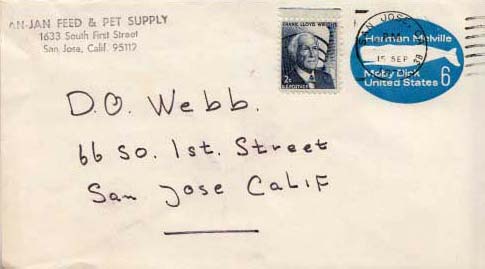 AN-JAN FEED & PET SUPPLY
1633 South First Street
San Jose, Calif. 95112
FRANK LLOYD WRIGHT
2c
U.S. POSTAGE
SAN JOSE
15 SEP
Herman Melville
Moby Dick
United States 6
D.O. Webb.
66 So. 1st. Street
San Jose CALIF